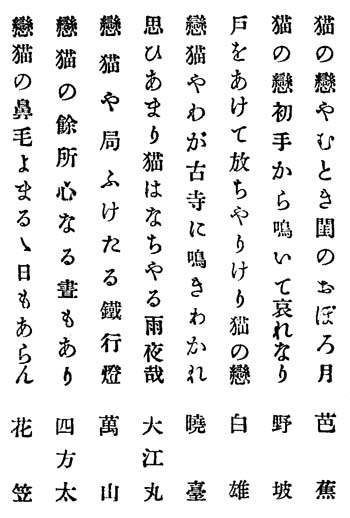 猫の戀やむとき閨のおぼろ月　芭蕉
猫の戀初手から鳴いて哀れなり　野坡
戸をあけて放ちやりけり猫の戀　白雄
戀猫やわが古寺に鳴きわかれ　曉臺
思ひあまり猫はなちやる雨夜哉　大江丸
戀猫や局ふけたる鐵行燈　萬山
戀猫の餘所心なる晝もあり　四方太
戀猫の鼻毛よまるゝ日もあらん　花笠